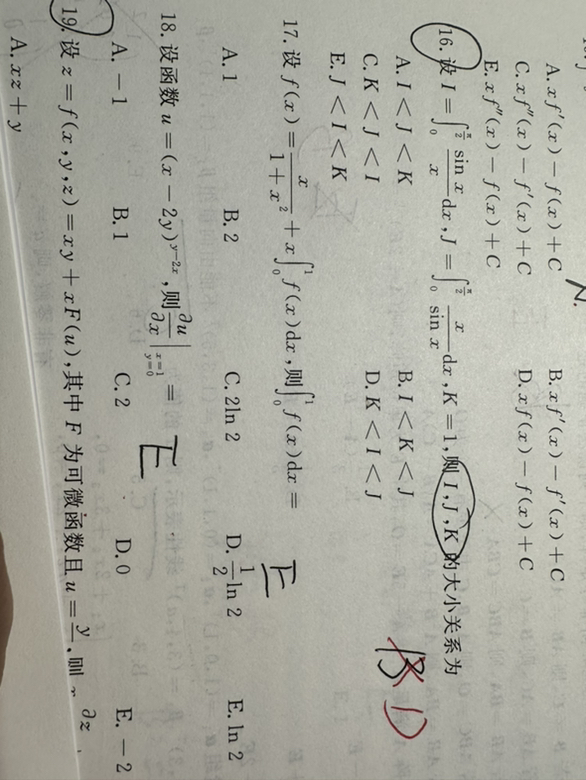 A. xf′(x) − f(x) + C B. xf′(x) − f′(x) + C
C. xf″(x) − f′(x) + C D. xf(x) − f(x) + C
E. xf″(x) − f(x) + C
16. 设 I = ∫₀^{π/2} \frac{sin x}{x} dx, J = ∫₀^{π/2} \frac{x}{sin x} dx, K = 1, 则 I, J, K 的大小关系为
B D
A. I < J < K B. I < K < J
C. K < J < I D. K < I < J
E. J < I < K
17. 设 f(x) = \frac{x}{1 + x²} + x∫₀¹ f(x)dx, 则 ∫₀¹ f(x)dx =
E
A. 1 B. 2 C. 2ln 2 D. \frac{1}{2} ln 2 E. ln 2
18. 设函数 u = (x − 2y)^{y−2x}, 则 \frac{∂u}{∂x}|_{x=1, y=0} =
E
A. −1 B. 1 C. 2 D. 0 E. −2
19. 设 z = f(x, y, z) = xy + xF(u), 其中 F 为可微函数且 u = \frac{y}{x}, 则
A. xz + y